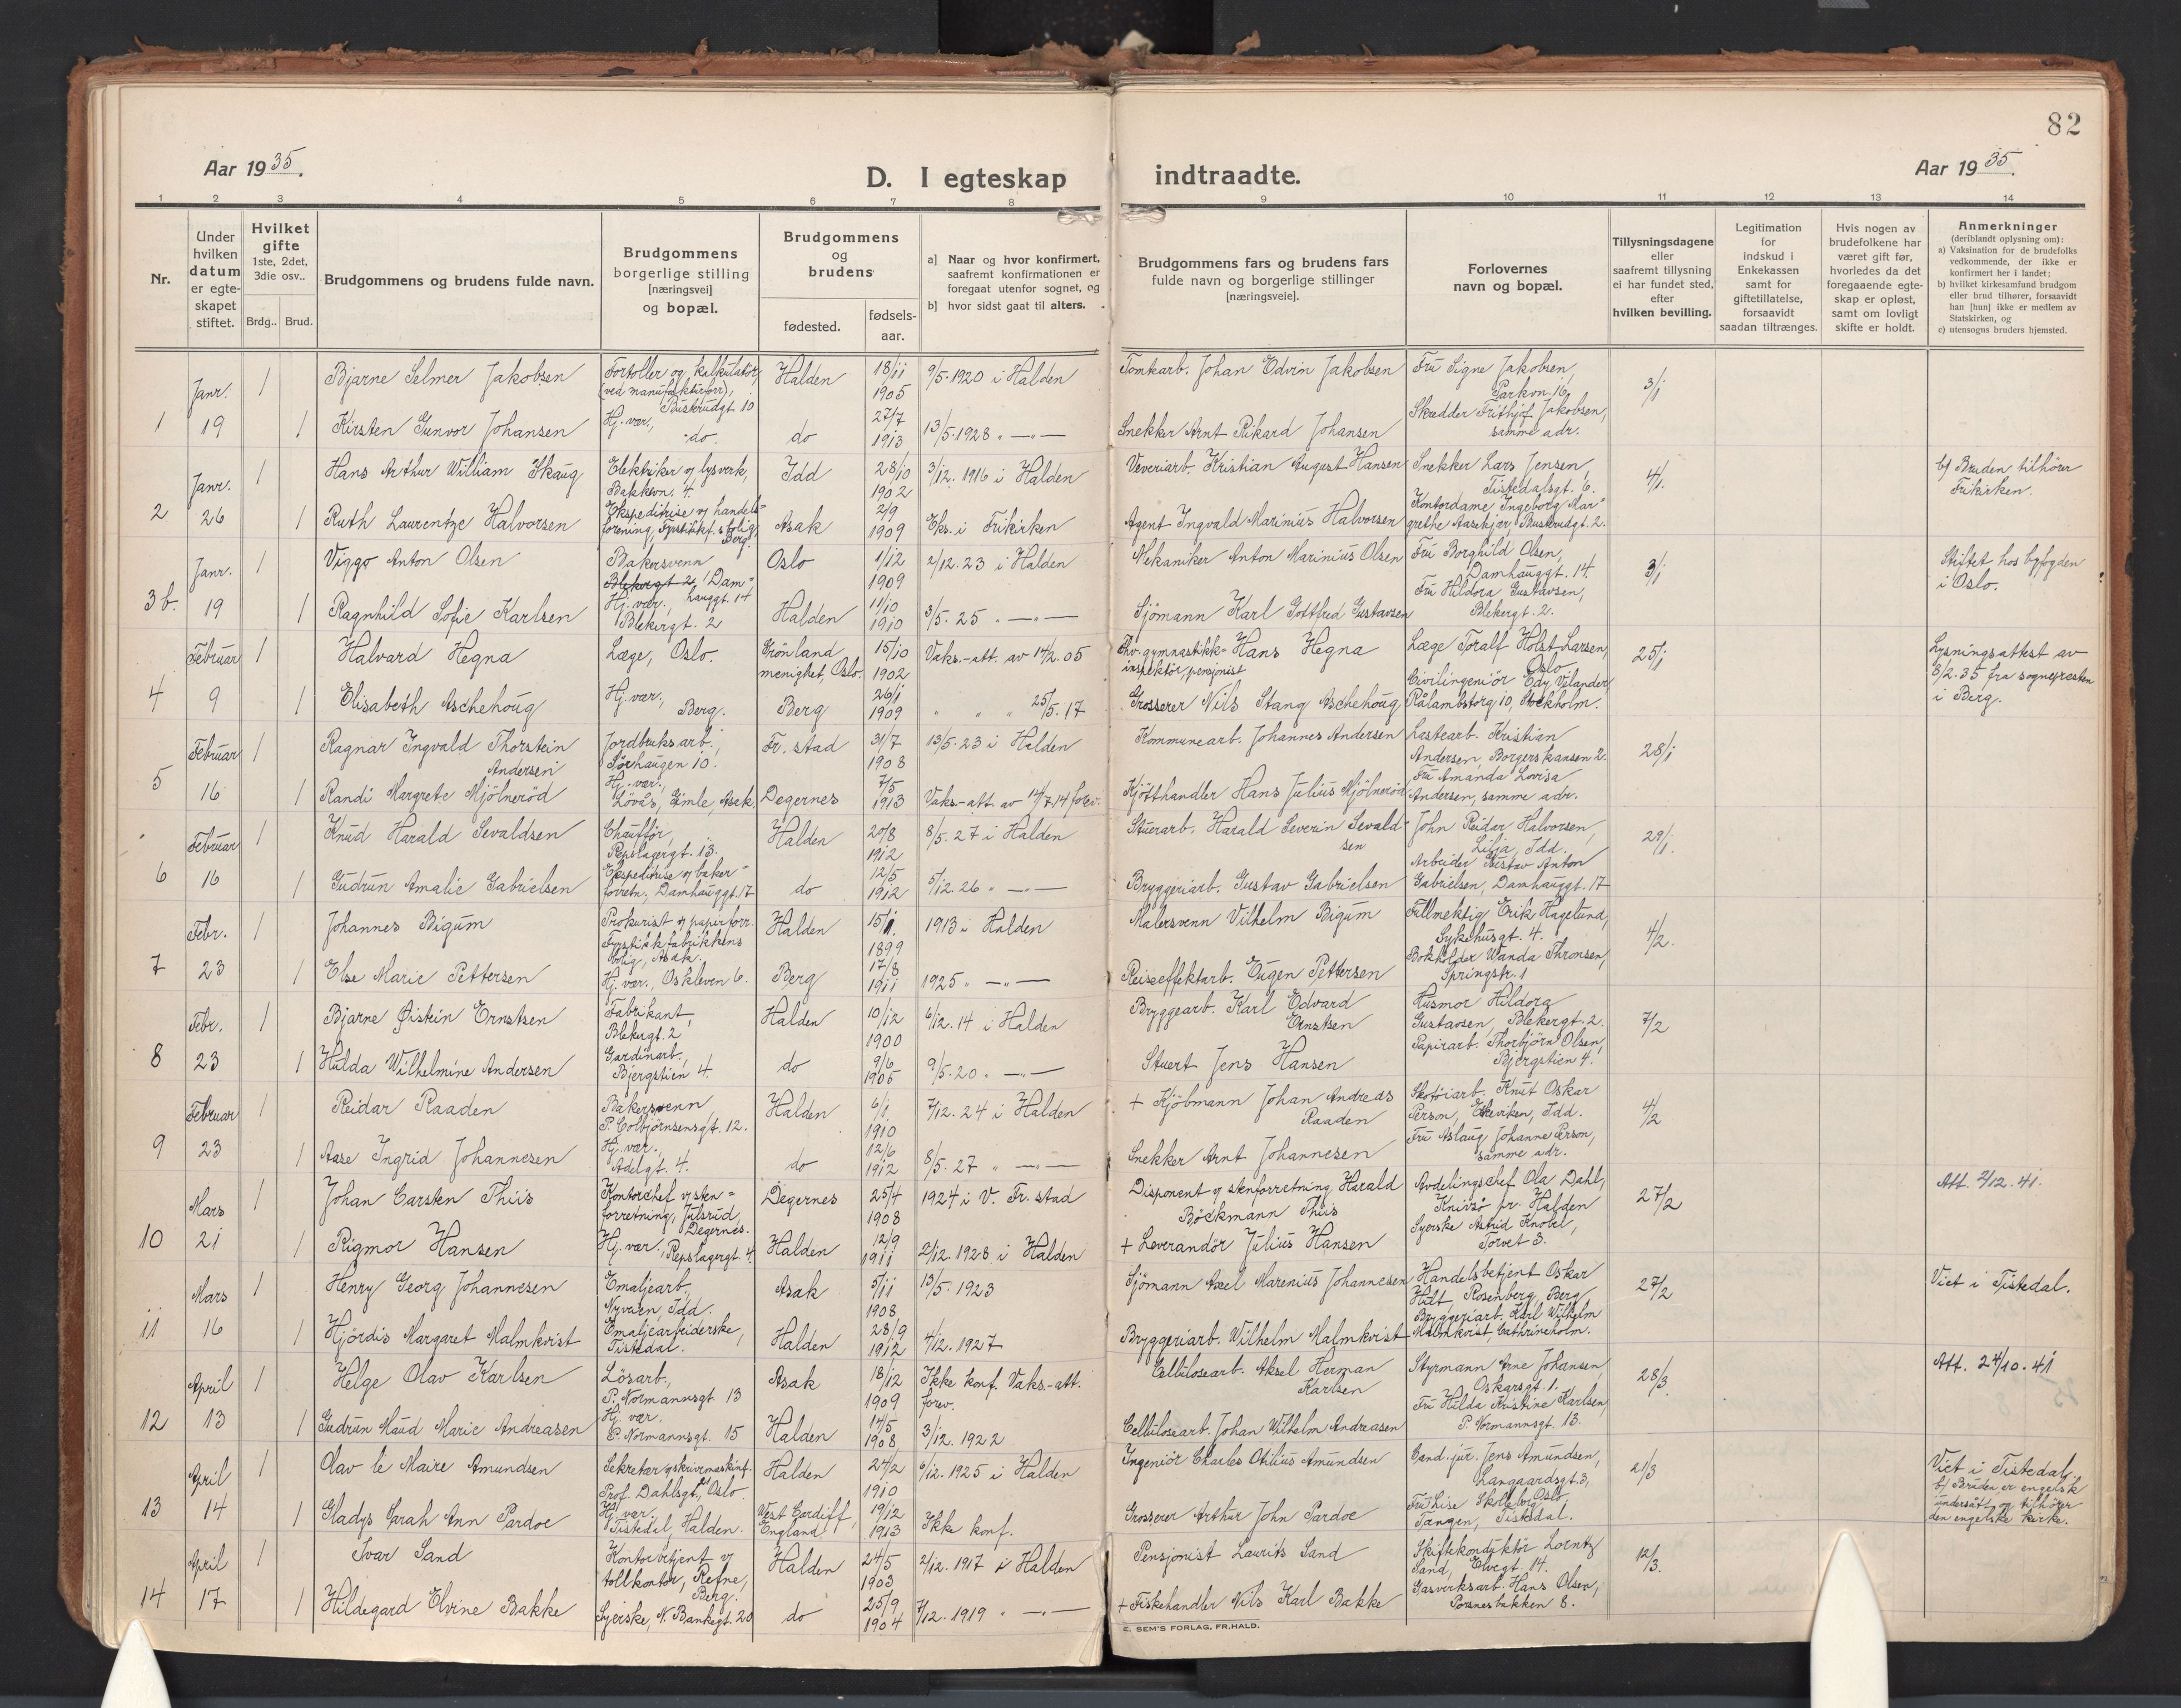 82
Aar 1935.
D. I egteskap indtraadte.
Aar 1935.
1 2 3 4 5 6 7 8 9 10 11 12 13 14
Nr.
Under hvilken datum er egteskapet stiftet.
Hvilket gifte 1ste, 2det, 3die osv..
Brdg.. Brud.
Brudgommens og brudens fulde navn.
Brudgommens borgerlige stilling [næringsvei] og bopæl.
Brudgommens og brudens
fødested.
fødsels-aar.
a] Naar og hvor konfirmert, saafremt konfirmationen er foregaat utenfor sognet, og
b] hvor sidst gaat til alters.
Brudgommens fars og brudens fars fulde navn og borgerlige stillinger [næringsveie].
Forlovernes navn og bopæl.
Tillysningsdagene eller saafremt tillysning ei har fundet sted, efter hvilken bevilling.
Legitimation for indskud i Enkekassen samt for giftetillatelse, forsaavidt saadan tiltrænges.
Hvis nogen av brudefolkene har været gift før, hvorledes da det foregaaende egteskap er opløst, samt om lovligt skifte er holdt.
Anmerkninger (deriblandt oplysning om):
a) Vaksination for de brudefolks vedkommende, der ikke er konfirmert her i landet;
b) hvilket kirkesamfund brudgom eller brud tilhører, forsaavidt han [hun] ikke er medlem av Statskirken, og
c) utensogns bruders hjemsted.
1 Janr. 19
1 Bjarne Selmer Jakobsen Fortoller og kalkulatör, (ved manufakturforr), Buskrudgt 10 Halden 18/11 1905 9/5.1920 i Halden Tomtearb. Johan Edvin Jakobsen Fru Signe Jakobsen, Parkvn. 16, 3/1
1 Kirsten Gunvor Johansen Hj. vær., do. do 27/7 1913 13/5.1928 " — " — Snekker Arnt Rikard Johansen Skredder Frithjof Jakobsen, samme adr.
2 Janr. 26
1 Hans Arthur William Skaug Elektriker v/ lysverk, Bakkevn. 4. Idd 28/10 1902 3/12. 1916 i Halden Veveriarb. Kristian August Hansen Snekker Lars Jensen, Tistedalsgt. 6. 4/1. b/ Bruden tilhörer Frikirken.
1 Ruth Laurentze Halvorsen Ekspeditrise v/ handelsforening, Fyrstikkf.s bolig, Berg Asak 2/9 1909 Eks. i Frikirken Agent Ingvald Marinius Halvorsen Kontordame Ingeborg Margrethe Aasekjær, Buskrudgt. 2.
3b. Janr. 19
1 Viggo Anton Olsen Bakersvenn Blekergt 2, Damhauggt. 14 Oslo 1/12 1909 2/12. 23 i Halden Mekaniker Anton Marinius Olsen Fru Borghild Olsen, Damhauggt. 14. 3/1 Stiftet hos byfogden i Oslo.
1 Ragnhild Sofie Karlsen Hj. vær., Blekergt. 2 Halden 11/10 1910 3/5. 25 " — " — Sjömann Karl Gottfred Gustavsen Fru Hildora Gustavsen, Blekergt. 2.
4 Februar 9
1 Halvard Hegna Læge, Oslo. Grönland menighet, Oslo. 15/10 1902 Vaks.-att. av 14/2. 05 Fhv. gymnastikkinspektör, pensjonist Hans Hegna Læge Toralf Holst-Larsen, Oslo 25/1 Lysningsattest av 8/2.35 fra sognepresten i Berg.
1 Elisabeth Aschehoug Hj. vær., Berg. Berg 26/1 1909 " " " 25/5. 17 Grosserer Nils Stang Aschehoug Civilingeniör Edy Velander, Rålambstorg 10, Stockholm.
5 Februar 16
1 Ragnar Ingvald Thorstein Andersen Jordbruksarb., Sörhaugen 10. Fr. stad 31/7 1908 13/5. 23 i Halden Kommunearb. Johannes Andersen Lastearb. Kristian Andersen, Borgerskansen 2. 28/1
1 Randi Margrete Mjölneröd Hj. vær., Lövås, Gimle, Asak, Degernes 7/5 1913 Vaks.-att. av 14/7.14 forev. Kjötthandler Hans Julius Mjölneröd Fru Amanda Lovisa Andersen, samme adr.
6 Februar 16
1 Knud Harald Sevaldsen Chauffför, Repslagergt. 13. Halden 20/8 1912 8/5. 27 i Halden Stuerarb. Harald Severin Sevaldsen John Reidar Halvorsen, Lilja, Idd. 29/1.
1 Gudrun Amalie Gabrielsen Ekspeditrise v/ bakerforretn., Damhauggt. 17 do 12/5 1912 5/12. 26 " — " — Bryggeriarb. Gustav Gabrielsen Arbeider Gustav Anton Gabrielsen, Damhauggt. 17
7 Febr. 23
1 Johannes Bigum Prokurist v/ papirforr. Fyrstikkfabrikkens bolig, Asak. Halden 15/1. 1899 1913 i Halden Malersvenn Vilhelm Bigum Fullmektig Erik Hagelund, Sykehusgt. 4. 4/2.
1 Else Marie Pettersen Hj. vær., Oskleven 6. Berg 17/8 1911 1925 " — " — Reiseeffektarb. Eugen Pettersen Bokholder Wanda Thronsen, Springstr. 1
8 Febr. 23
1 Bjarne Øistein Ernstsen Fabrikant, Blekergt. 2 Halden 10/12 1900 6/12. 14 i Halden Bryggearb. Karl Edvard Ernstsen Husmor Hildora Gustavsen, Blekergt. 2. 7/2
1 Hulda Wilhelmine Andersen Gardinarb., Bjergstien 4. do 9/6 1905 9/5. 20 " — " — Stuert Jens Hansen Papirarb. Thorbjörn Olsen, Bjergstien 4.
9 Februar 23
1 Reidar Raaden Bakersvenn, P. Colbjörnsensgt. 12. Halden 6/1 1910 7/12. 24 i Halden + Kjöbmann Johan Andreas Raaden Skotöiarb. Knut Oskar Person, Ekeviken, Idd. 4/2
1 Aase Ingrid Johannesen Hj. vær., Adelgt. 4. do 12/6 1912 8/5. 27 " — " — Snekker Arnt Johannesen Fru Aslaug Johanne Person, samme adr.
10 Mars 21
1 Johan Carsten Thiis Kontorchef v/ stenforretning, Julsrud, Degernes. Degernes 25/4 1908 1924 i V. Fr. stad Disponent v/ stenforretning, Harald Böckmann Thiis Avdelingschef Ola Dahl, Knivsö pr. Halden 27/2 Att. 2/12. 41.
1 Rigmor Hansen Hj. vær., Repslagergt 4. Halden 12/9 1911 2/12. 1928 i Halden + Leverandör Julius Hansen Syerske Astrid Knobel, Torvet 3.
11 Mars 16
1 Henry Georg Johannesen Emaljearb., Nyveien, Idd. Asak 5/11 1908 13/5. 1923 Sjömann Axel Marenius Johannesen Handelsbetjent Oskar Hilt, Rosenberg, Berg 27/2 Viet i Tistedal.
1 Hjördis Margaret Malmkvist Emaljearbeiderske, Tistedal. Halden 28/9 1912 4/12. 1927 Bryggeriarb. Wilhelm Malmkvist Bryggeriarb. Karl Wilhelm Malmkvist, Cathrineholm.
12 April 13
1 Helge Olav Karlsen Lösarb., P. Normannsgt. 13 Asak 18/12 1909 Ikke konf. Vaks.-att. forev. Cellulosearb. Aksel Herman Karlsen Styrmann Arne Johansen, Oskarsgt. 1. 28/3 Att. 24/10. 41
1 Gudrun Maud Marie Andreasen Hj. vær. P. Normannsgt. 15 Halden 14/5 1908 3/12. 1922 Cellulosearb. Johan Wilhelm Andreasen Fru Hilda Kristine Karlsen, P. Normannsgt. 13.
13 April 14
1 Olav le Maire Amundsen Sekretær v/ skrivmaskinf. Prof. Dahlsgt., Oslo. Halden 24/2 1910 6/12. 1925 i Halden Ingeniör Charles Otilius Amundsen Cand. jur. Jens Amundsen, Langaardsgt. 3, Oslo, 21/3 Viet i Tistedal. b/ Bruden er engelsk undersått og tilhörer den engelske kirke.
1 Gladys Sarah Ann Pardoe Hj. vær. Tistedal, Halden. West Cardiff, England 19/12 1913 Ikke konf. Grosserer Arthur John Pardoe Fru Lise Skolleborg, Tangen, Tistedal.
14 April 17
1 Ivar Sand Kontorbetjent v/ tollkontor, Refne, Berg. Halden 24/5 1903 2/12. 1917 i Halden Pensjonist Laurits Sand Skiftekonduktör Lorentz Sand, Elvegt. 14. 12/3.
1 Hildegard Elvine Bakke Syerske, N. Bankegt. 20 do 25/9 1904 7/12. 1919 " — " — + Fiskehandler Nils Karl Bakke Gasverksarb. Hans Olsen, Porsnesbakken 8.
E. SEM'S FORLAG, FR.HALD.